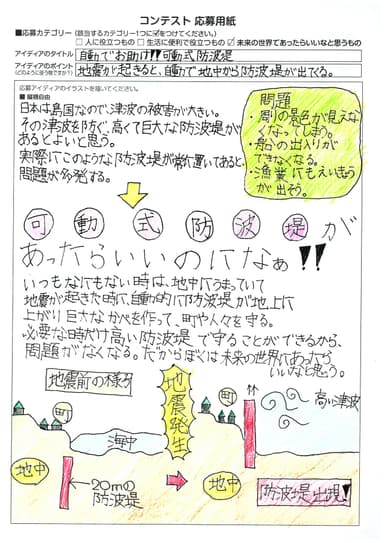 コンテスト 応募用紙
■応募カテゴリー(該当するカテゴリー1つに☑をつけてください。)
□人に役立つもの □生活に便利で役立つもの ☑未来の世界であったらいいなと思うもの
アイディアのタイトル 自動でお助け!!可動式防波堤
アイディアのポイント
(どのように使う物ですか?) 地震が起きると、自動で地中から防波堤が出てくる。
応募アイディアのイラストを描いてください。
■縦横自由
日本は島国なので、津波の被害が大きい。
その津波を防ぐ、高くて巨大な防波堤が
あるとよいと思う。
実際にこのような防波堤が常に置いてあると、
問題が多発する。
問題
・周りの景色が見えな
くなってしまう。
・船の出入りが
できなくなる。
・漁業にもえいきょう
が出そう。
可動式防波堤が
あったらいいのになぁ!!
いつもなにもない時は、地中にうまっていて
地震が起きた時に、自動的に防波堤が地上に
上がり巨大なかべを作って、町や人々を守る。
必要な時だけ高い防波堤で守ることができるから、
問題がなくなる。だからぼくは未来の世界にあったら
いいなと思う。
地震前の様子
町
海中
地中
20mの
防波堤
地震発生
町
高い津波
地中
防波堤出現!